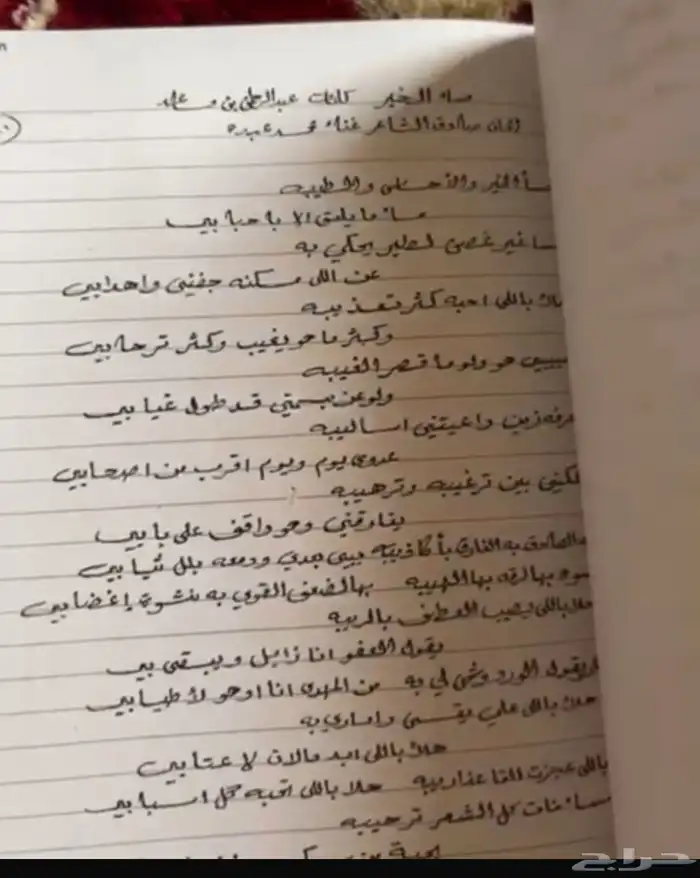 مساء الخير كلمات عبدالرحمن بن مساعد
الحان صادق الشاعر غناء محمد عبده
مساء الخير والأحساس والطيبه
مساء ما يليق الا با حبابي
مساء غير غصن لطير يحكي به
عن اللي مسكنه جفني واهدابي
هلا باللي احبه كثر تعذيبه
وكبثر ما هو يغيب وكثر ترحابي
حبيبي هو ولو ما قصر الغيبه
ولو عن بسمتي قد طول غيابي
زين واعيتني اساليبه
عدوي يوم ويوم اقرب من اصحابي
بين ترغيبه وترهيبه
يفارقني وهو واقف على بابي
الصادق به الفارق بأكاذيبه يبي بعدي ودمعه بلل ثيابي
بهالرقه بها الهيبه بهالضعف القوي به
هلا باللي يصيب العطف بالريبه
يقول العفو انا زايل ويبقى بي
يقول الورد وشي لي به من المهدي انا اوهو لأطيابي
هلا باللي علي يقسى واماري به
هلا باللي ابد مالان لاعتابي
باللي عجزت القا عذاريبه هلا باللي احبه كل اسبابي
مساء فات كل الشعر ترحيبه
حراج